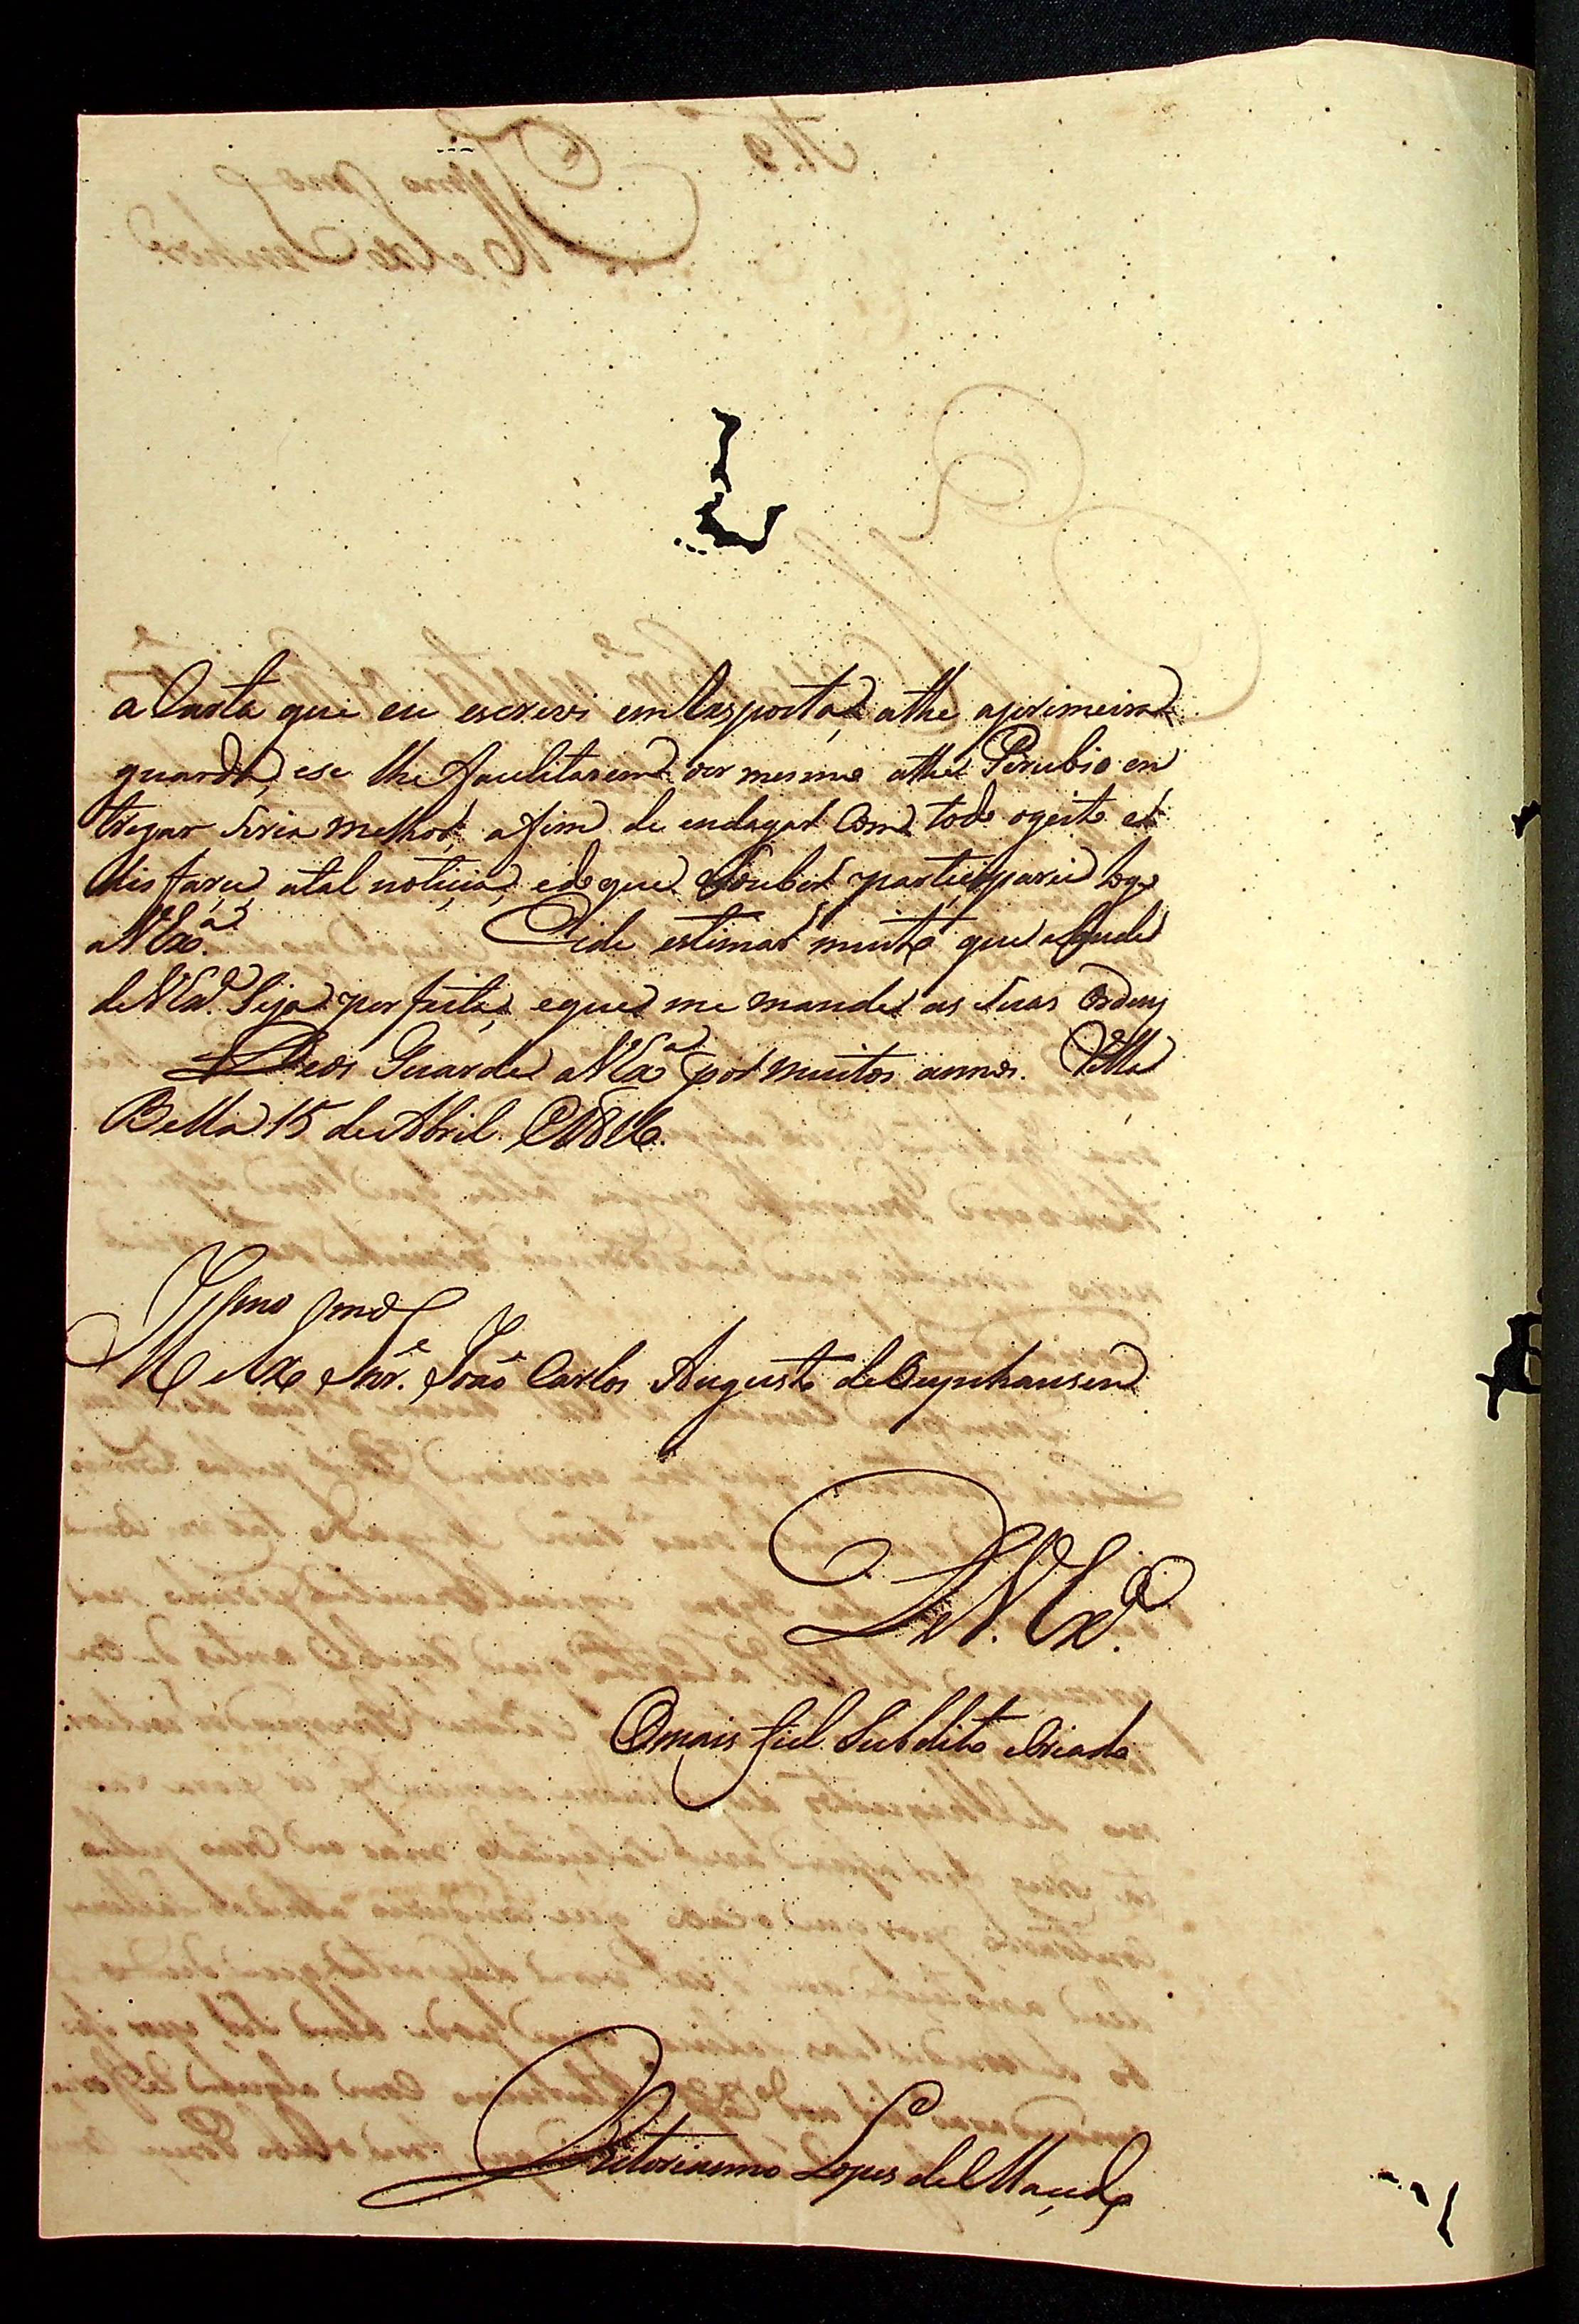 a Carta que eu escrevi em Resposta, athe aprimeira
guarda, ese lhe facilitarem ir mesmo athe Perubio en
tregar seria melhor, afim de endagar Com todo ogeito e
disfarce, atal noticia, edoque Souber participarei logo
aVExª. Eide estimar muito que aSaude
deVExª. Seja perfeita, eque me mande as suas Ordens
Deos Guarde aVExª por muitos annos. Villa
Bella 15 deAbril 1816.
Illmo Snr. João Carlos Augusto deOeynhausen
DeV. Exª.
Omais fiel Subdito eCriado
Victoriannno Lopes deMacedo